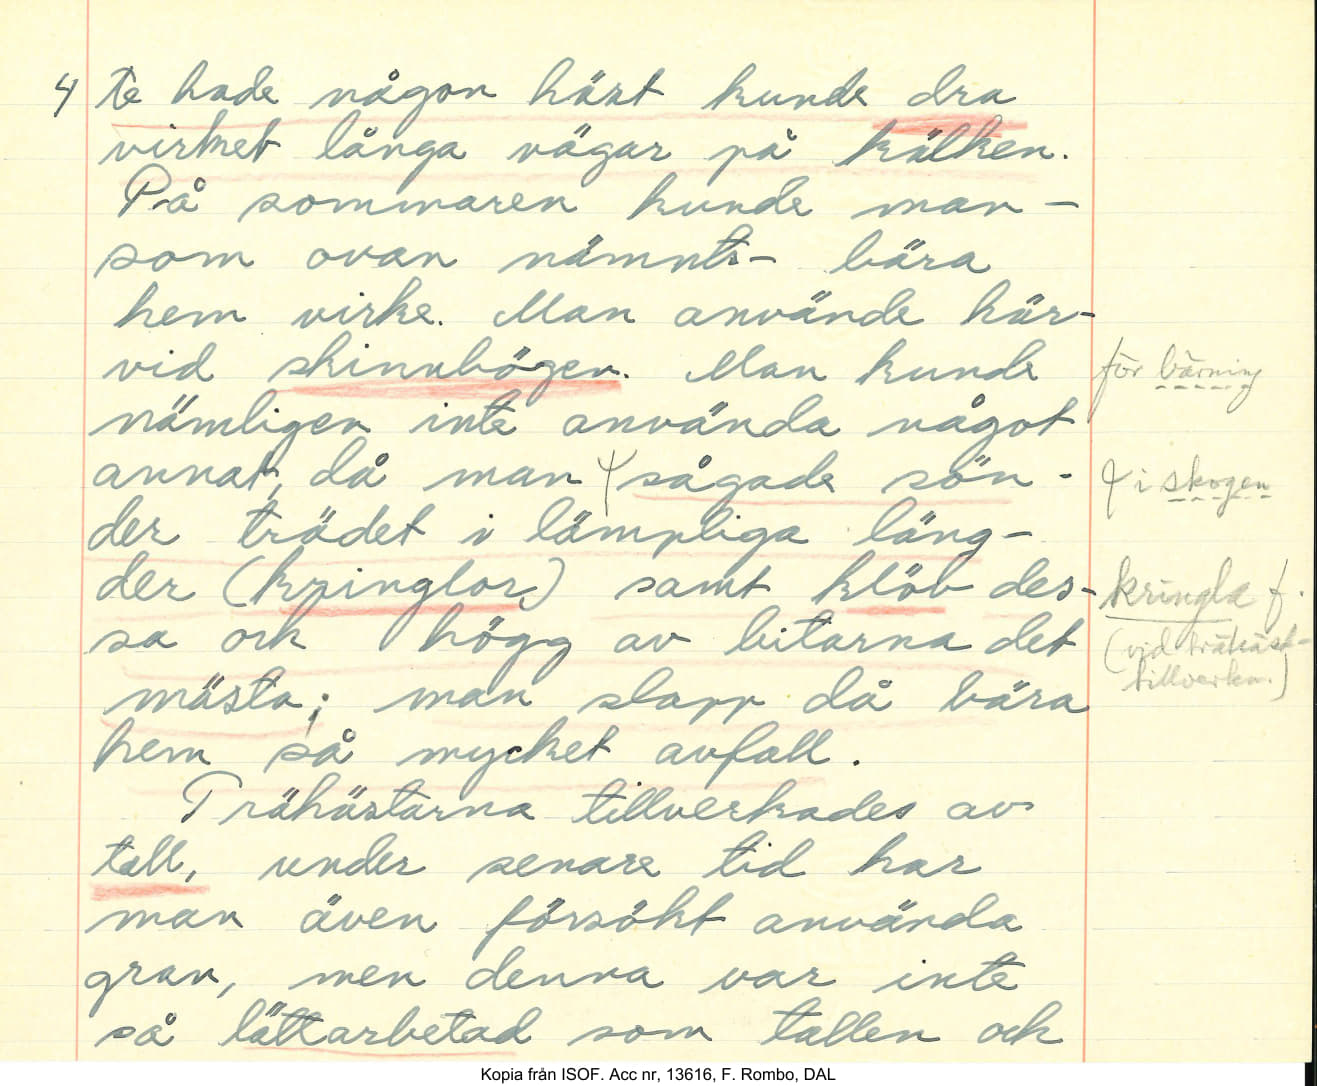 4 te hade någon häst kunde dra
virket långa vägar på kälken.
På sommaren kunde man -
som ovan nämnts - bära
hem virke. Man använde här-
vid skinnbögen. Man kunde
för bärning
nämligen inte använda något
annat, då man sågade sön-
i skogen
der trädet i lämpliga läng-
der (kringlor) samt klöv des-
kringla f.
sa och högg av bitarna det
(vid trähäst-
tillverkn.)
mästa; man slapp då bära
hem så mycket avfall.
Trähästarna tillverkades av
tall, under senare tid har
man även försökt använda
gran, men denna var inte
så lättarbetad som tallen och
Kopia från ISOF. Acc nr, 13616, F. Rombo, DAL